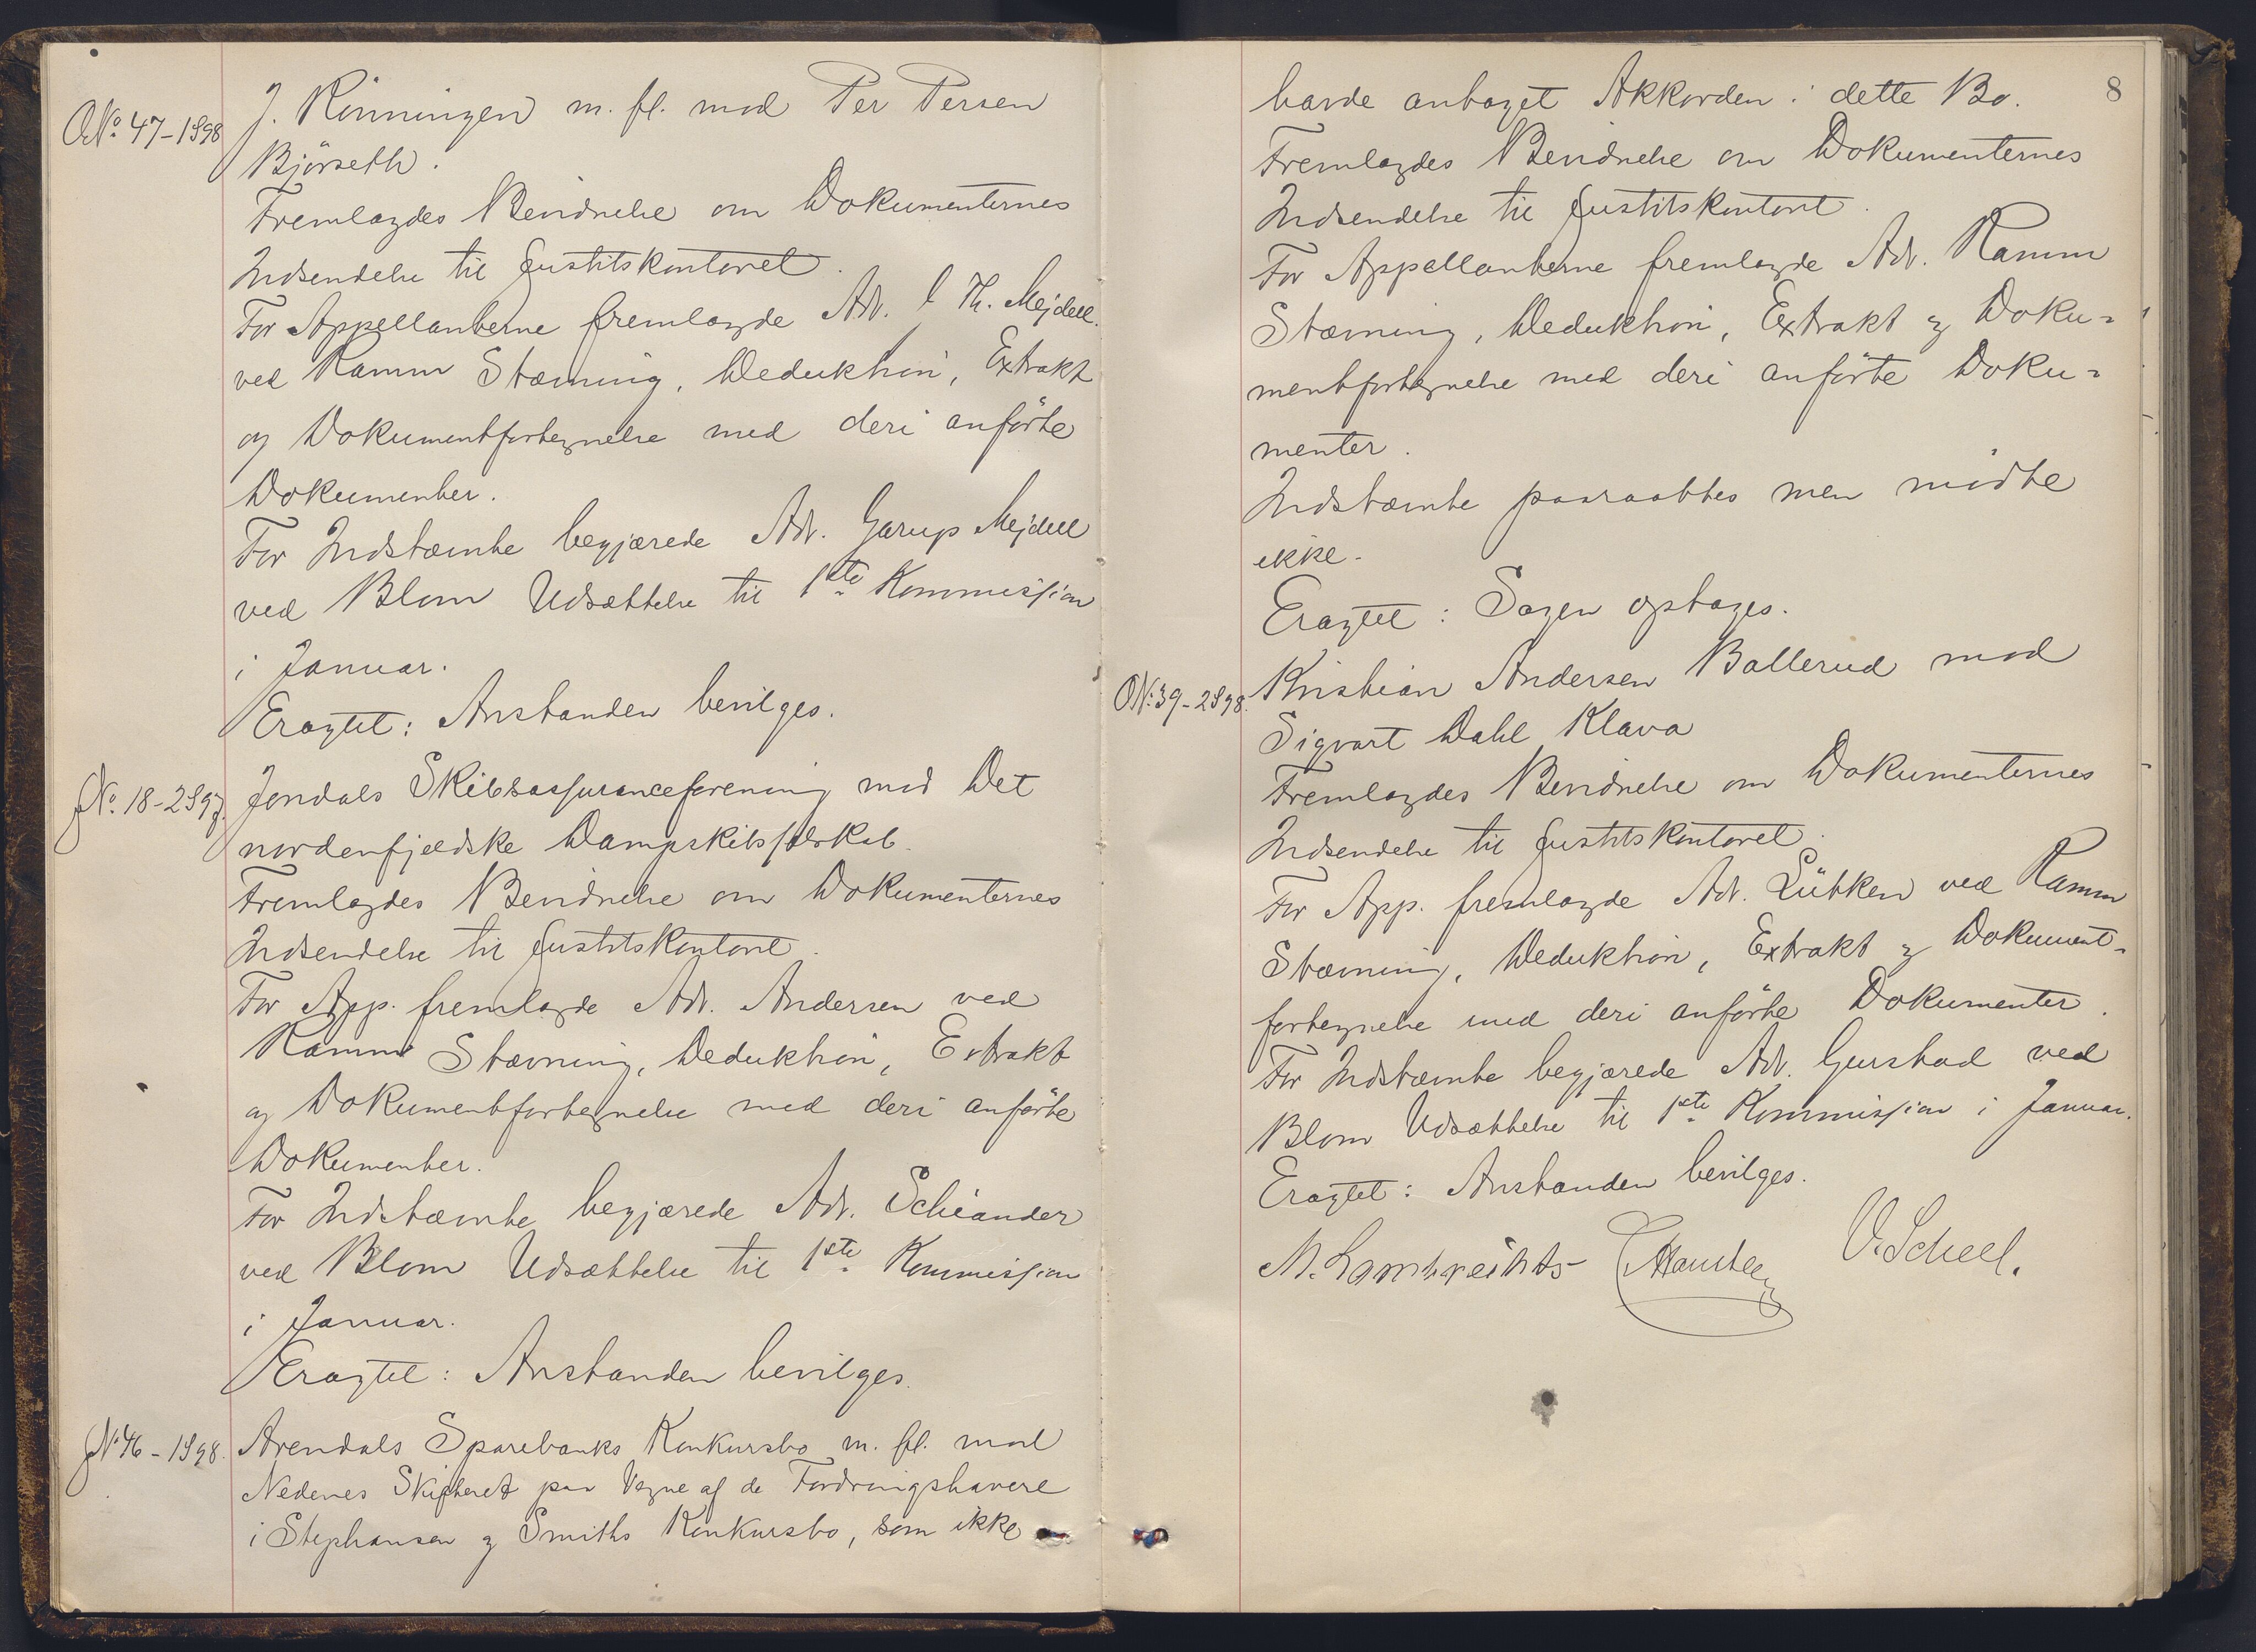 O.No. 47-1898
J. Rönningen m. fl. mod Per Persen
Björseth.
Fremlagdes Bevidnelse om Dokumenternes
Indsendelse til Justitskontoret.
For Appellanterne fremlagde Adv. Th. Mejdell
ved Ramm Stævning, Deduktion, Extrakt
og Dokumentfortegnelse med deri anförte
Dokumenter.
For Indstævnte begjærede Adv. Garup Mejdell
ved Blom Udsættelse til 1ste Kommission
i Januar.
Eragtet: Anstanden bevilges.
No. 18-2897.
Jondals Skibsassuranceforening mod Det
nordenfjeldske Dampskibsselskab.
Fremlagdes Bevidnelse om Dokumenternes
Indsendelse til Justitskontoret.
For App. fremlagde Adv. Andersen ved
Ramm Stævning, Deduktion, Extrakt
og Dokumentfortegnelse med deri anförte
Dokumenter.
For Indstævnte begjærede Adv. Schiander
ved Blom Udsættelse til 1ste Kommission
i Januar.
Eragtet: Anstanden bevilges.
No 46-1898.
Arendals Sparebanks Konkursbo m. fl. mod
Nedenes Skifteret paa Vegne af de Fordringshavere
i Stephansen og Smiths Konkursbo, som ikke
8
havde antaget Akkorden i dette Bo.
Fremlagdes Bevidnelse om Dokumenternes
Indsendelse til Justitskontoret.
For Appellanterne fremlagde Adv. Ramm
Stævning, Deduktion, Extrakt og Doku-
mentfortegnelse med deri anförte Doku-
menter.
Indstævnte paaraabtes men mödte
ikke.
Eragtet: Sagen optages.
O.No. 39-2898.
Kristian Andersen Ballerud mod
Sigvart Dahl Klava
Fremlagdes Bevidnelse om Dokumenternes
Indsendelse til Justitskontoret.
For App. fremlagde Adv. Lütken ved Ramm
Stævning, Deduktion, Extrakt og Dokument-
fortegnelse med deri anförte Dokumenter.
For Indstævnte begjærede Adv. Gurstad ved
Blom Udsættelse til 1ste Kommission i Januar.
Eragtet: Anstanden bevilges.
M. Lambrechts V. Scheel.